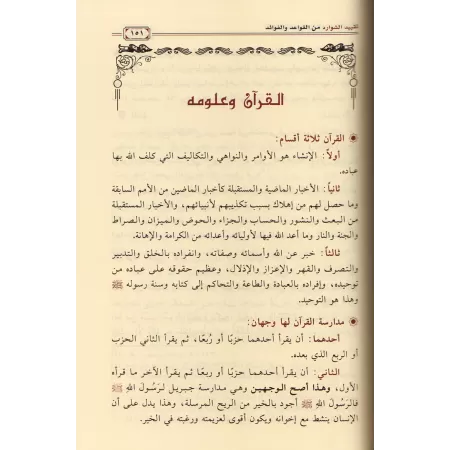 تقييد الشوارد من القواعد والفوائد
١٥١
القرآن وعلومه
القرآن ثلاثة أقسام:
أولاً: الإنشاء هو الأوامر والنواهي والتكاليف التي كلف الله بها
عباده.
ثانياً: الأخبار الماضية والمستقبلة كأخبار الماضين من الأمم السابقة
وما حصل لهم من إهلاك بسبب تكذيبهم لأنبيائهم، والأخبار المستقبلة
من البعث والنشور والحساب والجزاء والحوض والميزان والصراط
والجنة والنار وما أعد الله فيها لأوليائه وأعدائه من الكرامة والإهانة.
ثالثاً: خبر عن الله وأسمائه وصفاته، وانفراده بالخلق والتدبير
والتصرف والقهر والإعزاز والإذلال، وعظيم حقوقه على عباده من
توحيده، وإفراده بالعبادة والطاعة والتحاكم إلى كتابه وسنة رسوله ﷺ
وهذا هو التوحيد.
مدارسة القرآن لها وجهان:
أحدهما: أن يقرأ أحدهما حزبًا أو رُبعًا، ثم يقرأ الثاني الحزب
أو الربع الذي بعده.
الثاني: أن يقرأ أحدهما حزبًا أو ربعًا ثم يقرأ الآخر ما قرأه
الأول، وهذا أصح الوجهين وهي مدارسة جبريل لرَسُولَ اللهِ ﷺ
فالرَسُولَ اللهِ ﷺ أجود بالخير من الريح المرسلة، وهذا يدل على أن
الإنسان ينشط مع إخوانه ويكون أقوى لعزيمته ورغبته في الخير.